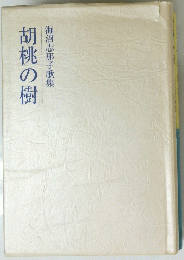 胡桃の樹
海沼志那子歌集